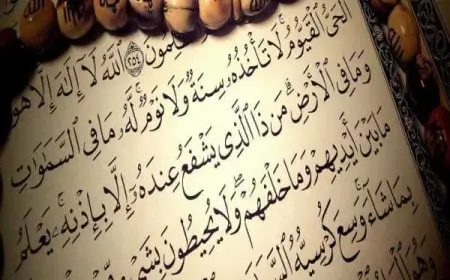 ـلِمُونَ ٢٥٤ ٱللَّهُ لَآ إِلَٰهَ إِلَّا هُوَ
ٱلْحَىُّ ٱلْقَيُّومُ لَا تَأْخُذُهُۥ سِنَةٌ وَلَا نَوْمٌ لَّهُۥ مَا فِى ٱلسَّمَٰوَٰتِ
وَمَا فِى ٱلْأَرْضِ مَن ذَا ٱلَّذِى يَشْفَعُ عِندَهُۥٓ إِلَّا بِإِذْنِهِۦ يَعْلَمُ
مَا بَيْنَ أَيْدِيهِمْ وَمَا خَلْفَهُمْ وَلَا يُحِيطُونَ بِشَىْ
بِمَا شَآءَ وَسِعَ كُرْسِيُّهُ ٱلسَّ
وَهُوَ